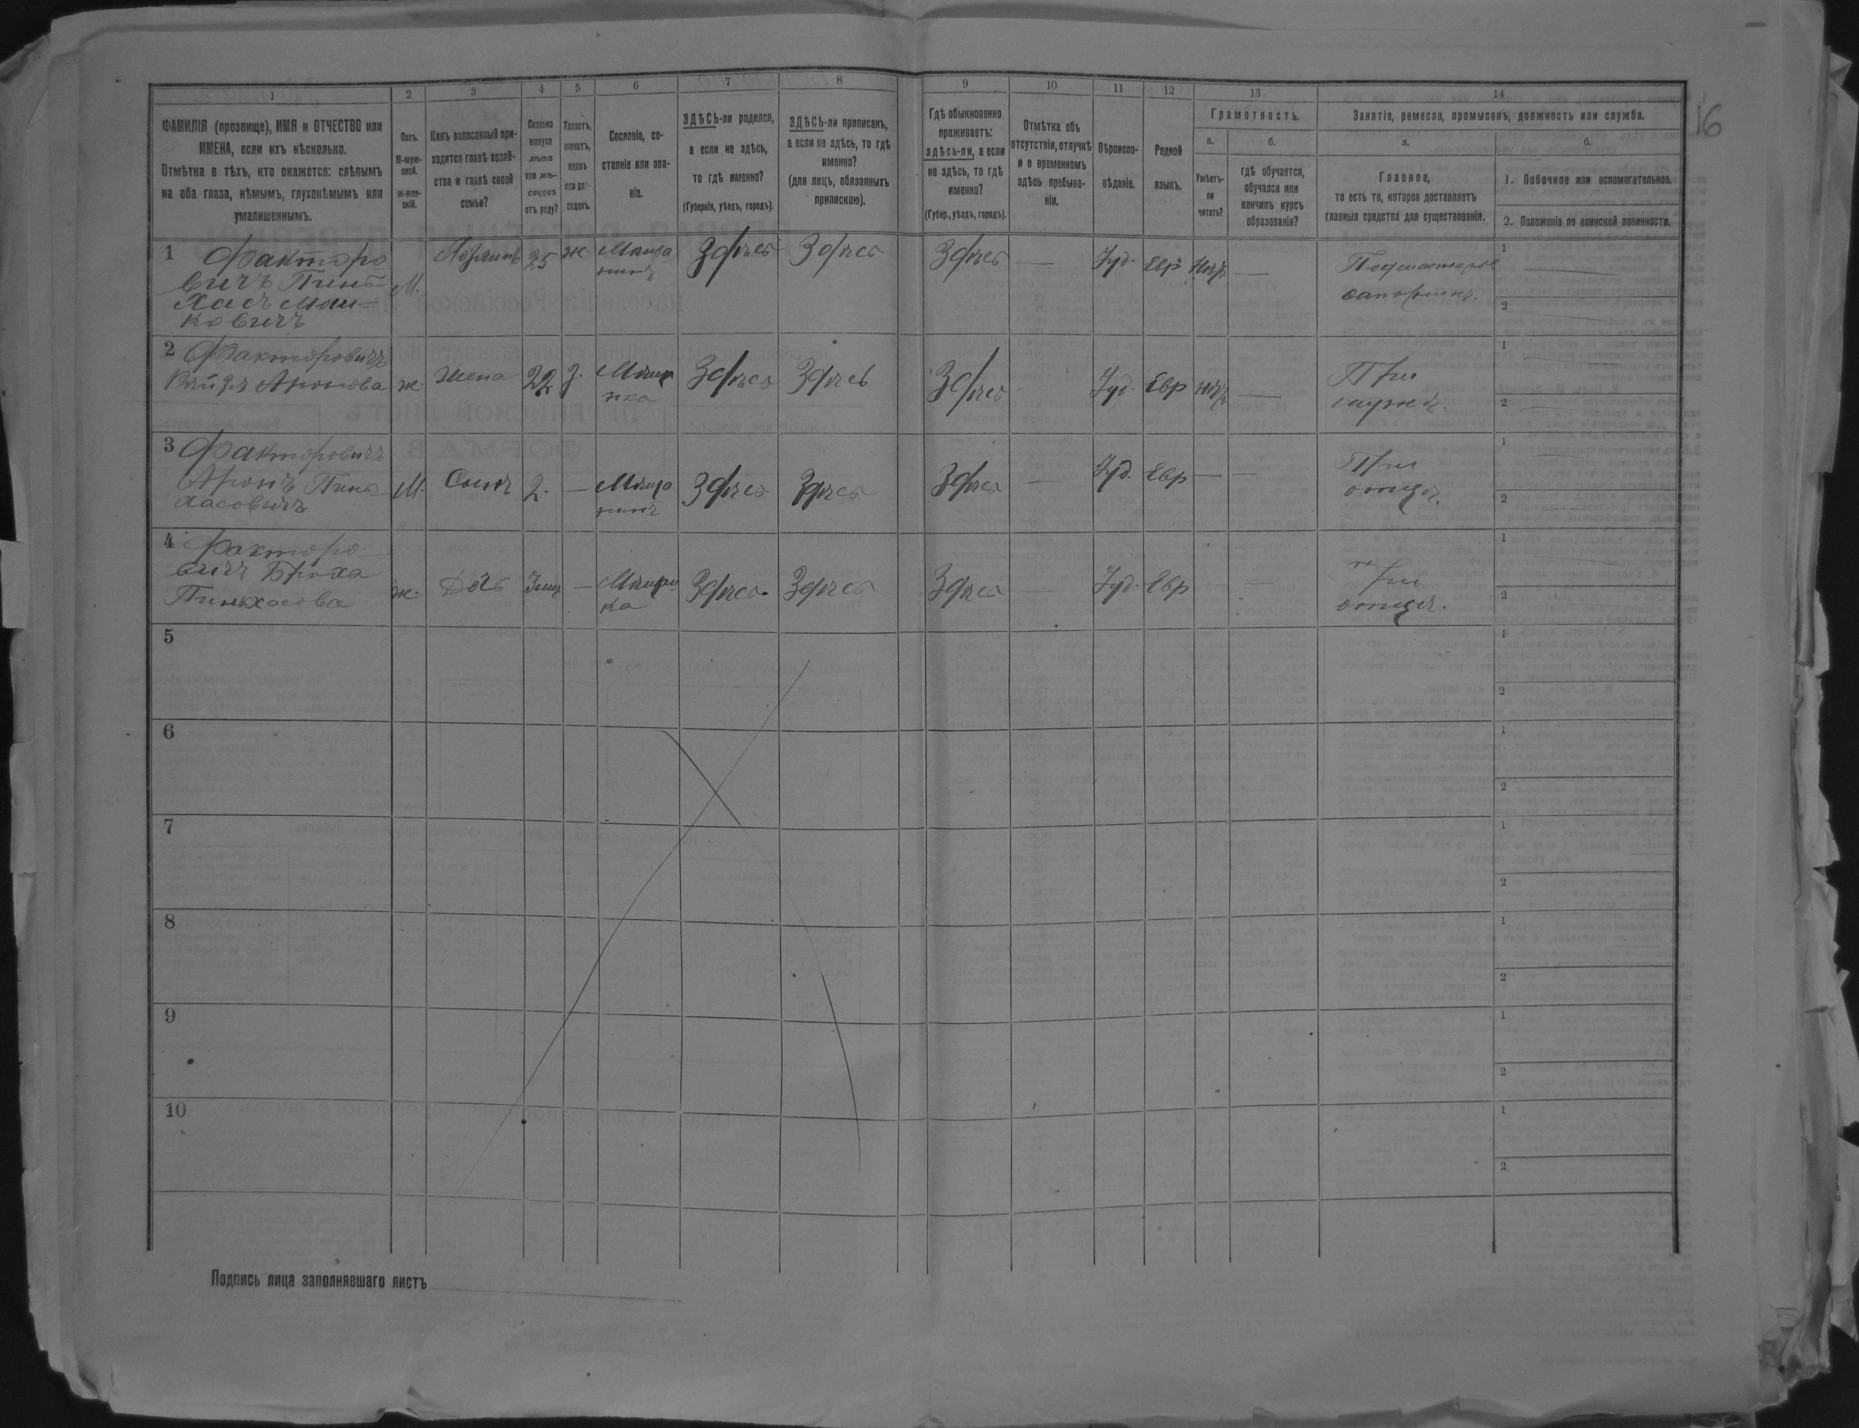 1 2 3 4 5 6 7 8 9 10 11 12 13 14
16
ФАМИЛІЯ (прозвище), ИМЯ и ОТЧЕСТВО или
ИМЕНА, если ихъ нѣсколько.
Отмѣтка о тѣхъ, кто окажется: слѣпымъ
на оба глаза, нѣмымъ, глухонѣмымъ или
умалишеннымъ.
Полъ.
М-муж-
ской.
ж-жен-
скій.
Какъ записанный при-
ходится главѣ хозяй-
ства и главѣ своей
семьи?
Сколько
минуло
лѣтъ
или мѣ-
сяцевъ
отъ роду?
Холостъ,
женатъ,
вдовъ
или раз-
веденъ.
Сословіе, со-
стояніе или зва-
ніе.
ЗДѢСЬ-ли родился,
а если не здѣсь,
то гдѣ именно?
(Губернія, уѣздъ, городъ).
ЗДѢСЬ-ли приписанъ,
а если не здѣсь, то гдѣ
именно?
(для лицъ, обязанныхъ
припискою).
Гдѣ обыкновенно
проживаетъ:
здѣсь-ли, а если
не здѣсь, то гдѣ
именно?
(Губер., уѣздъ, городъ).
Отмѣтка объ
отсутствіи, отлучкѣ
и о временномъ
здѣсь пребыва-
ніи.
Вѣроиспо-
вѣданіе.
Родной
языкъ.
Грамотность.
а.
Умѣетъ-
ли
читать?
б.
гдѣ обучается,
обучался или
кончилъ курсъ
образованія?
Занятіе, ремесло, промыселъ, должность или служба.
а.
Главное,
то есть то, которое доставляетъ
главныя средства для существованія.
б.
1. Побочное или вспомогательное.
2. Положеніе по воинской повинности.
1 Факторо
вичъ Пинь-
хасъ Май-
ковичъ
М. Хозяинъ 25 ж. Мѣща
нинъ Здѣсь Здѣсь Здѣсь — Іуд. Евр Нѣтъ —
Подмастерье
сапожник.
1
2
2 Факторовичъ
Аронова ж. жена 22 З. Мѣщ
нка Здѣсь Здѣсь Здѣсь Іуд. Евр нѣтъ —
При
мужѣ.
1
2
3 Факторовичъ
Аронъ Пинь
хасовичъ М. Сынъ 2. — Мѣща
нинъ Здѣсь Здѣсь Здѣсь — Іуд. Евр — —
При
отцѣ.
1
2
4 Факторо
вичъ Броха
Пиньхасова ж. Дочь — Мѣщан
ка Здѣсь Здѣсь Здѣсь — Іуд. Евр — —
При
отцѣ.
1
2
5
1
2
6
1
2
7
1
2
8
1
2
9
1
2
10
1
2
Подпись лица заполнявшаго листъ